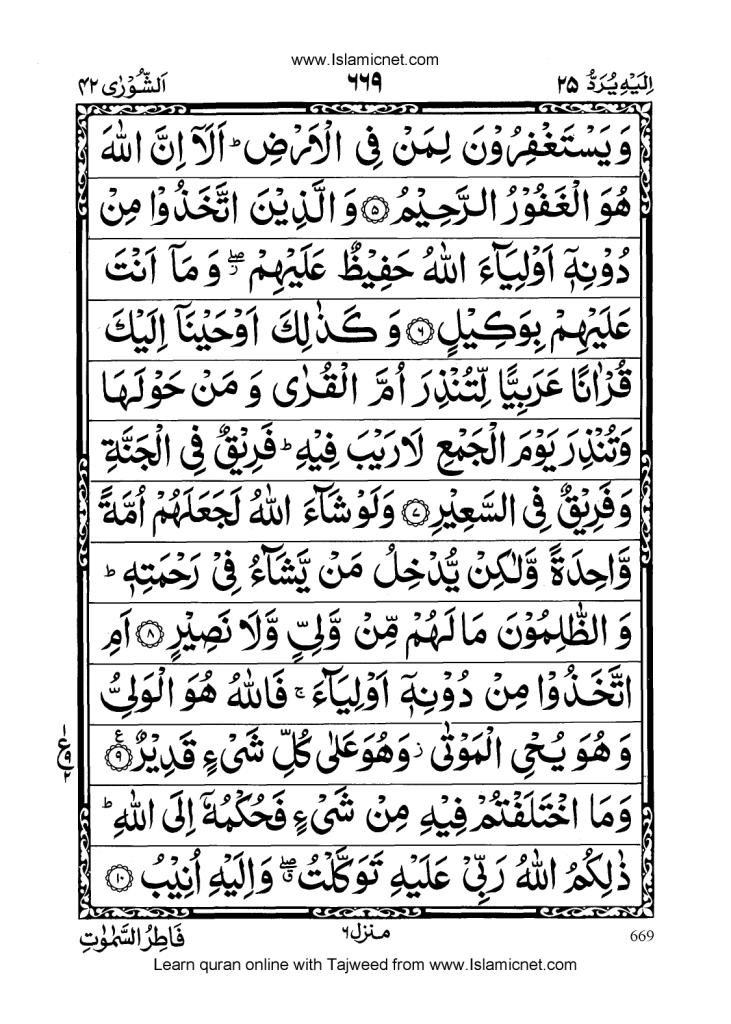 www.Islamicnet.com
اِلَيْهِ يُرَدُّ ٢٥
٦٦٩
اَلشُّوْرٰى ٤٢
وَ يَسْتَغْفِرُوْنَ لِمَنْ فِى الْاَرْضِ ؕ اَلَاۤ اِنَّ اللّٰهَ
هُوَ الْغَفُوْرُ الرَّحِيْمُ ﴿۵﴾ وَ الَّذِيْنَ اتَّخَذُوْا مِنْ
دُوْنِهٖۤ اَوْلِيَآءَ اللّٰهُ حَفِيْظٌ عَلَيْهِمْ ۖ٘ وَ مَاۤ اَنْتَ
عَلَيْهِمْ بِوَكِيْلٍ ﴿۶﴾ وَ كَذٰلِكَ اَوْحَيْنَاۤ اِلَيْكَ
قُرْاٰنًا عَرَبِيًّا لِّتُنْذِرَ اُمَّ الْقُرٰى وَ مَنْ حَوْلَهَا
وَتُنْذِرَ يَوْمَ الْجَمْعِ لَا رَيْبَ فِيْهِ ؕ فَرِيْقٌ فِى الْجَنَّةِ
وَ فَرِيْقٌ فِى السَّعِيْرِ ﴿۷﴾ وَلَوْ شَآءَ اللّٰهُ لَجَعَلَهُمْ اُمَّةً
وَّاحِدَةً وَّلٰكِنْ يُّدْخِلُ مَنْ يَّشَآءُ فِىْ رَحْمَتِهٖ ؕ
وَ الظّٰلِمُوْنَ مَا لَهُمْ مِّنْ وَّلِىٍّ وَّلَا نَصِيْرٍ ﴿۸﴾ اَمِ
اتَّخَذُوْا مِنْ دُوْنِهٖۤ اَوْلِيَآءَ ۚ فَاللّٰهُ هُوَ الْوَلِىُّ
وَ هُوَ يُحْىِ الْمَوْتٰى ؗ وَهُوَ عَلٰى كُلِّ شَىْءٍ قَدِيْرٌ ﴿۹﴾ ع
ع ٩ ٢
وَمَا اخْتَلَفْتُمْ فِيْهِ مِنْ شَىْءٍ فَحُكْمُهٗۤ اِلَى اللّٰهِ ؕ
ذٰلِكُمُ اللّٰهُ رَبِّىْ عَلَيْهِ تَوَكَّلْتُ ۖۗ وَاِلَيْهِ اُنِيْبُ ﴿۱۰﴾
فَاطِرُ السَّمٰوٰتِ
منزل ٦
669
Learn quran online with Tajweed from www.Islamicnet.com